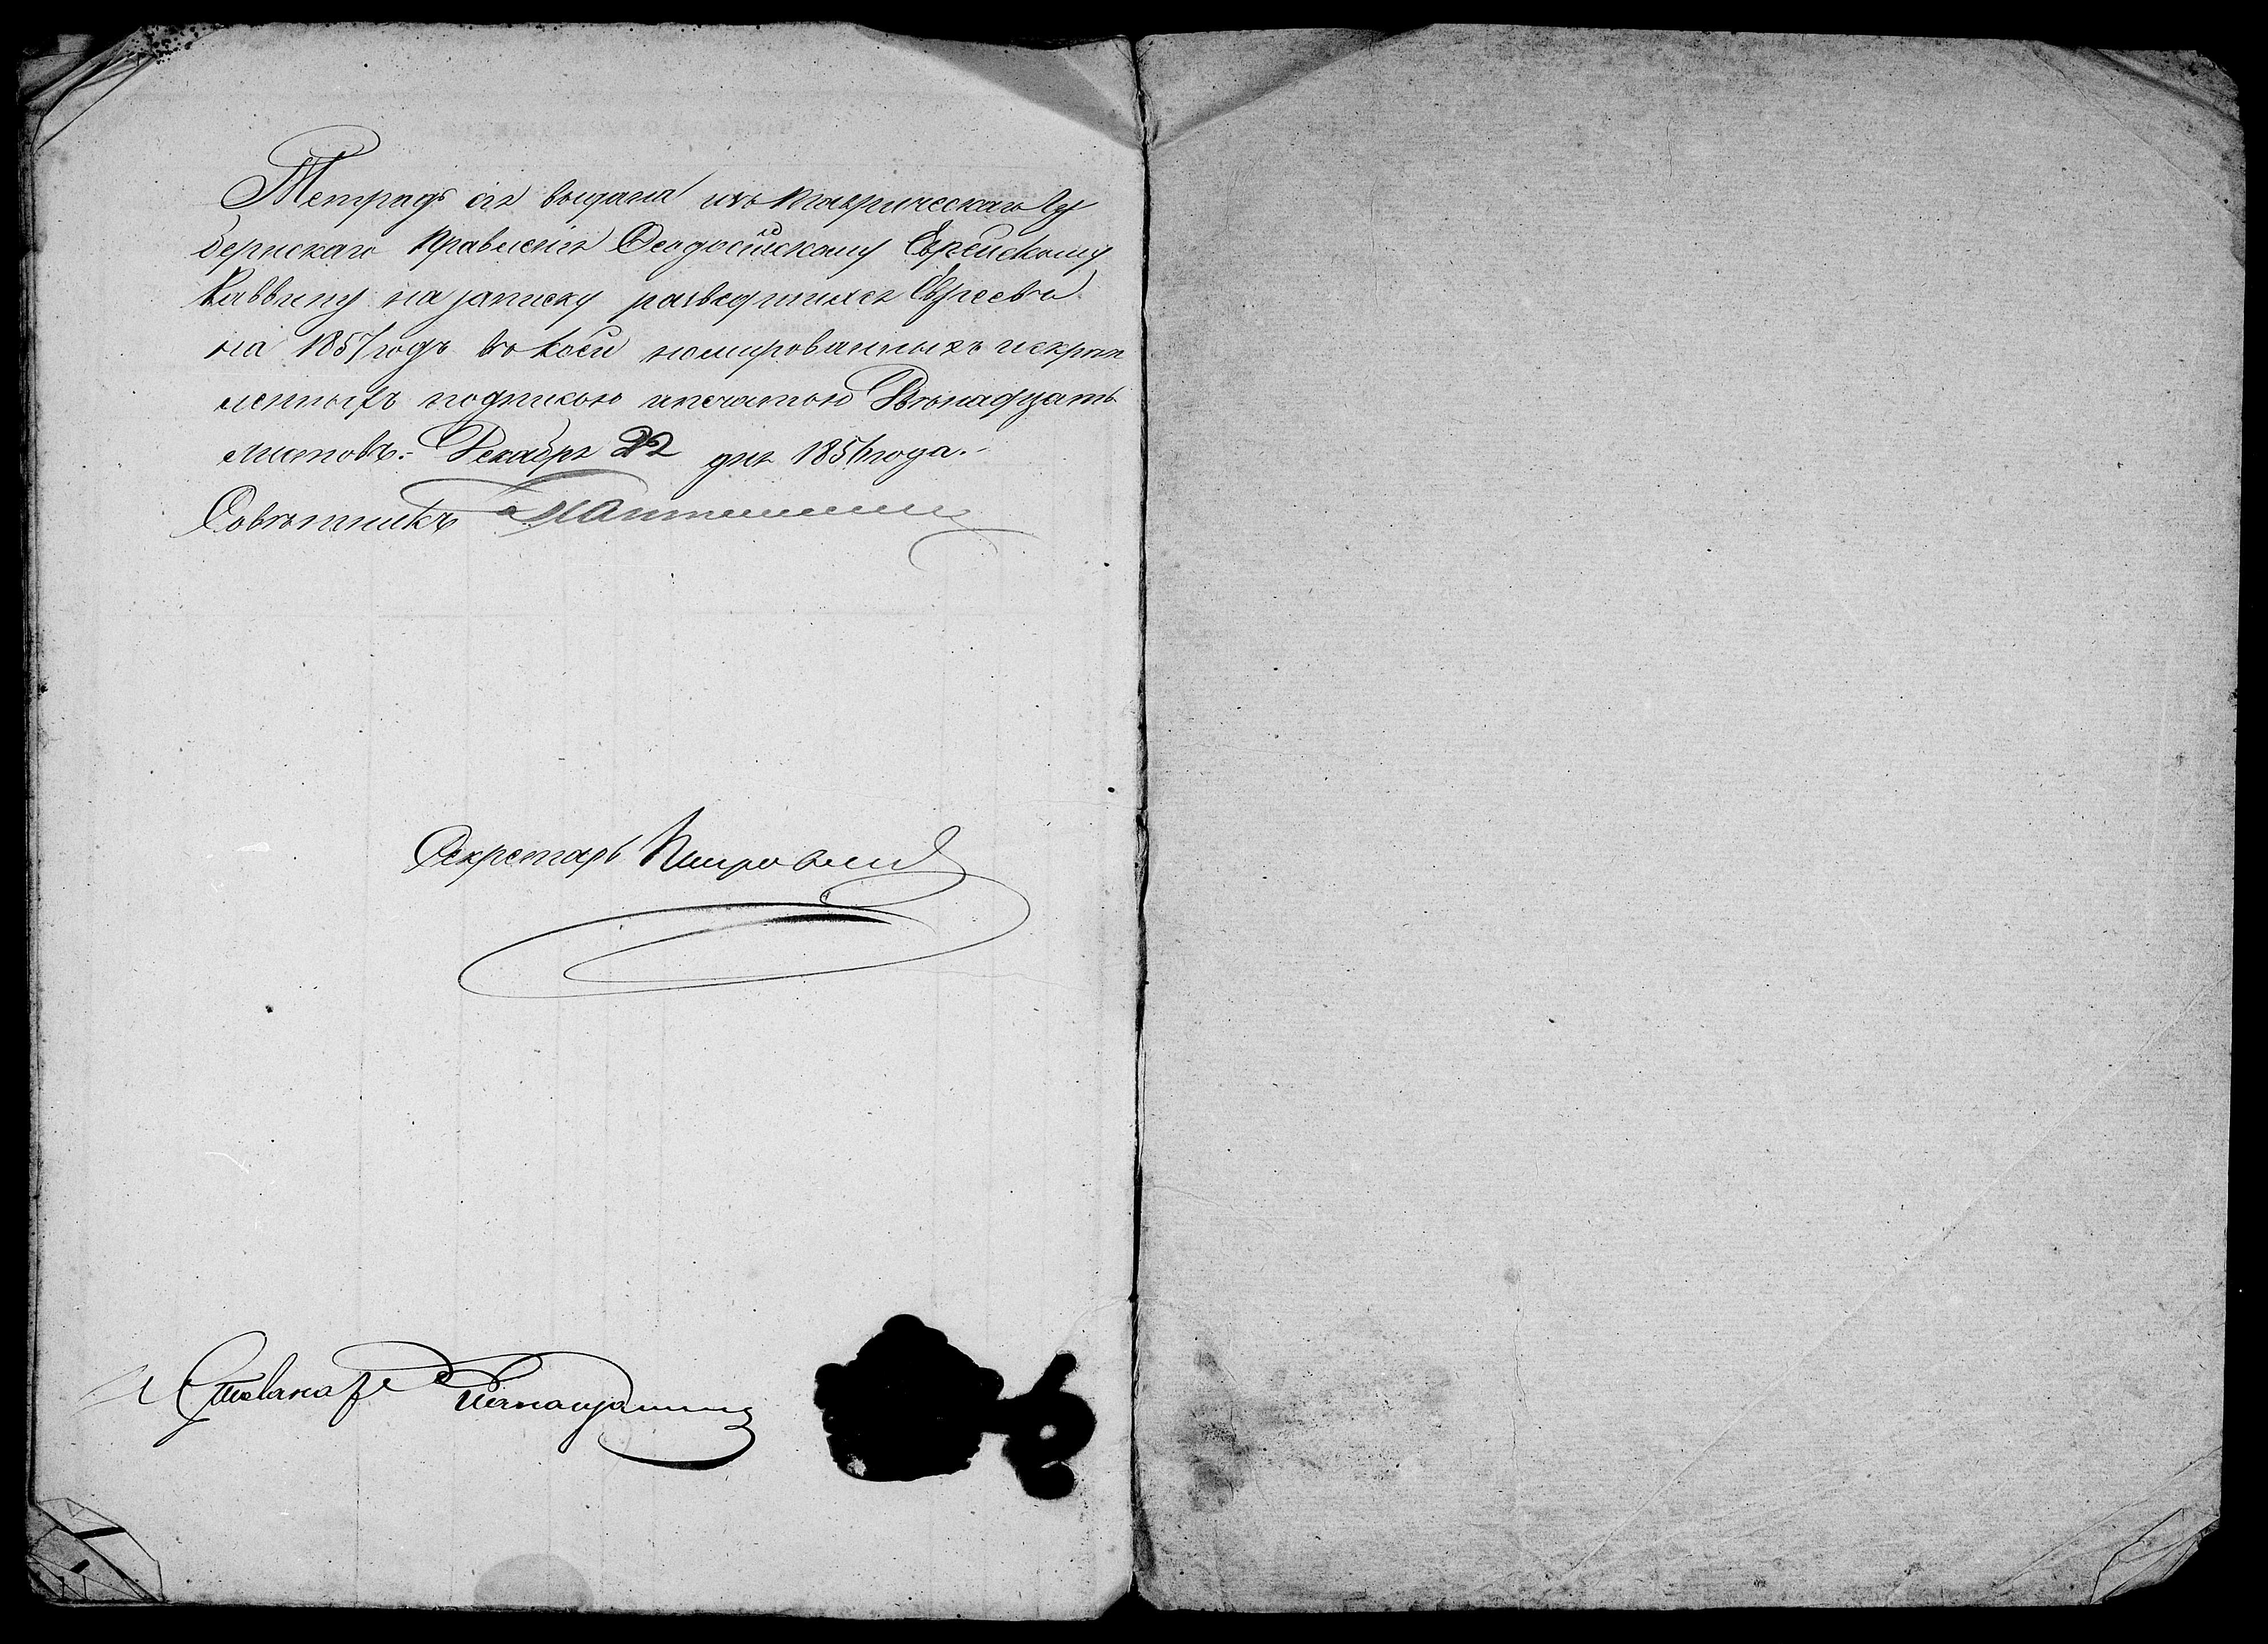 Тетрадь сія выдана изъ Таврическаго Гу
бернскаго Правленія Ѳеодосійскому Еврейскому
Раввину на записку разведшихся Евреевъ
на 1857 годъ въ коей номированныхъ искреп
ленныхъ подписью ипечатью Двѣнадцать
листовъ.- Декабря 22 дня 1856 года.-
Совѣтникъ
Секретарь